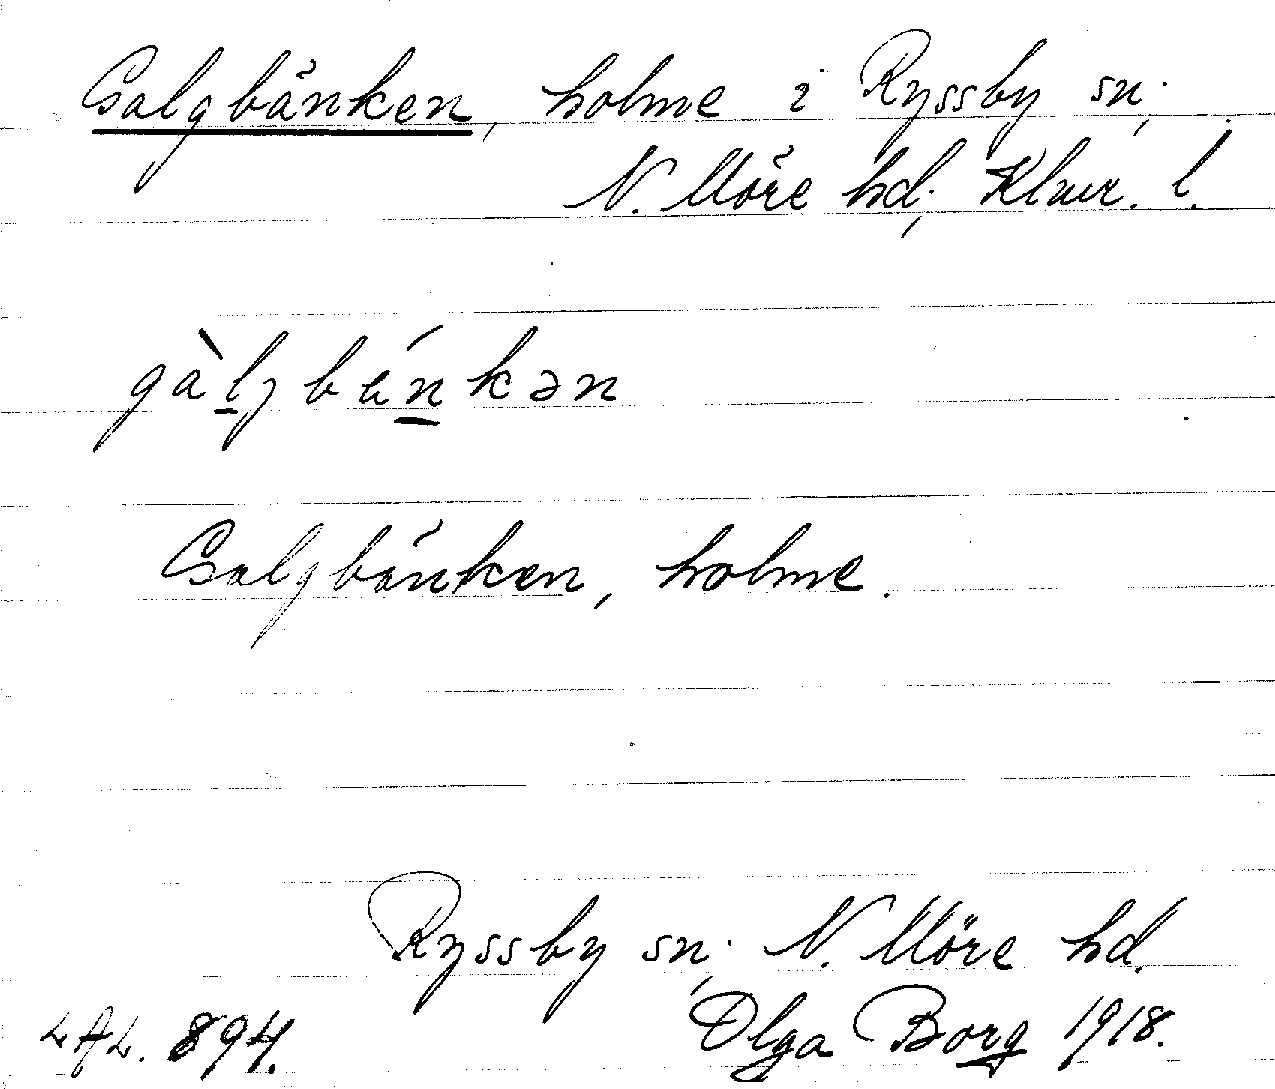 Galgbänken, holme i Ryssby sn;
N. Möre hd; Klmr. l.
gàlʒbánkən
Galgbänken, holme.
Ryssby sn; N. Möre hd.
LAL. 894. Olga Borg 1918.